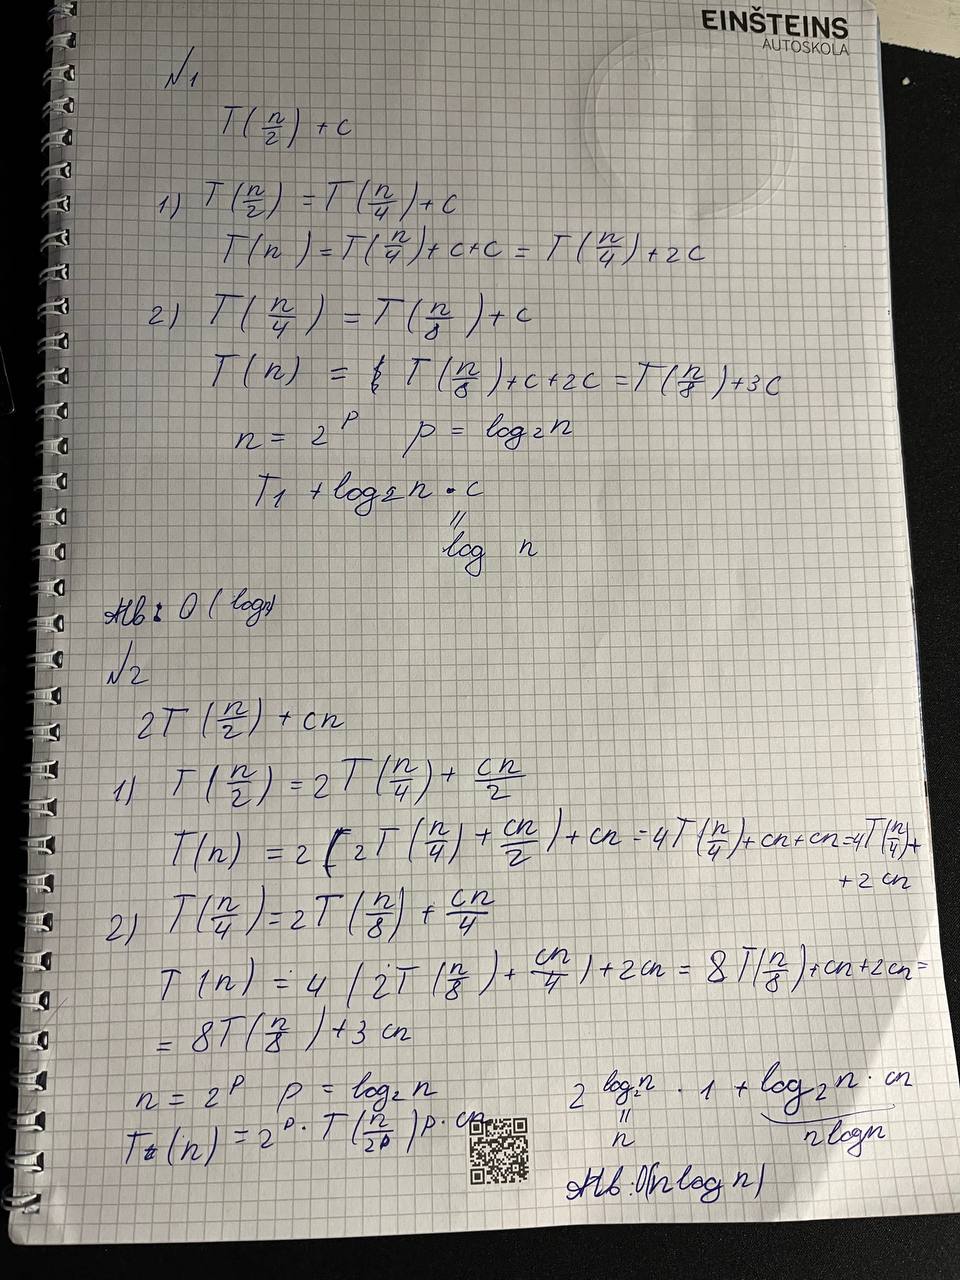 EINŠTEINS
AUTOSKOLA
№1
T(n/2) + c
1) T(n/2) = T(n/4) + c
T(n) = T(n/4) + c + c = T(n/4) + 2c
2) T(n/4) = T(n/8) + c
T(n) = T(n/8) + c + 2c = T(n/8) + 3c
n = 2^p p = log₂n
T₁ + log₂n · c
||
log n
Atb: O(log n)
№2
2T(n/2) + cn
1) T(n/2) = 2T(n/4) + cn/2
T(n) = 2(2T(n/4) + cn/2) + cn = 4T(n/4) + cn + cn = 4T(n/4) +
+ 2cn
2) T(n/4) = 2T(n/8) + cn/4
T(n) = 4(2T(n/8) + cn/4) + 2cn = 8T(n/8) + cn + 2cn =
= 8T(n/8) + 3cn
n = 2^p p = log₂n
T(n) = 2^p · T(n/2^p) p · cn
2^log₂n · 1 + log₂n · cn
||
n
n log n
Atb: O(n log n)